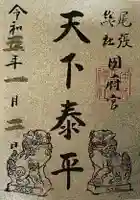 尾張
総社 国府宮
天下泰平
令和五年一月二日